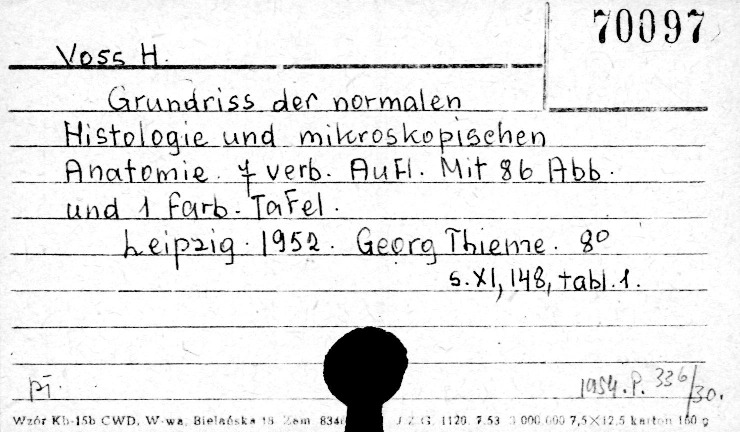 70097
Voss H.
Grundriss der normalen
Histologie und mikroskopischen
Anatomie. 7 verb. Aufl. Mit 86 Abb.
und 1 farb. Tafel.
Leipzig. 1952. Georg Thieme. 8°
s. XI, 148, tabl. 1.
pi.
1954. P. 336/30.
Wzór Kb-15b CWD, W-wa, Bielańska 18 Zam. 834 J Z G. 1120. 7.53 3 000.000 7,5×12,5 karton 160 g